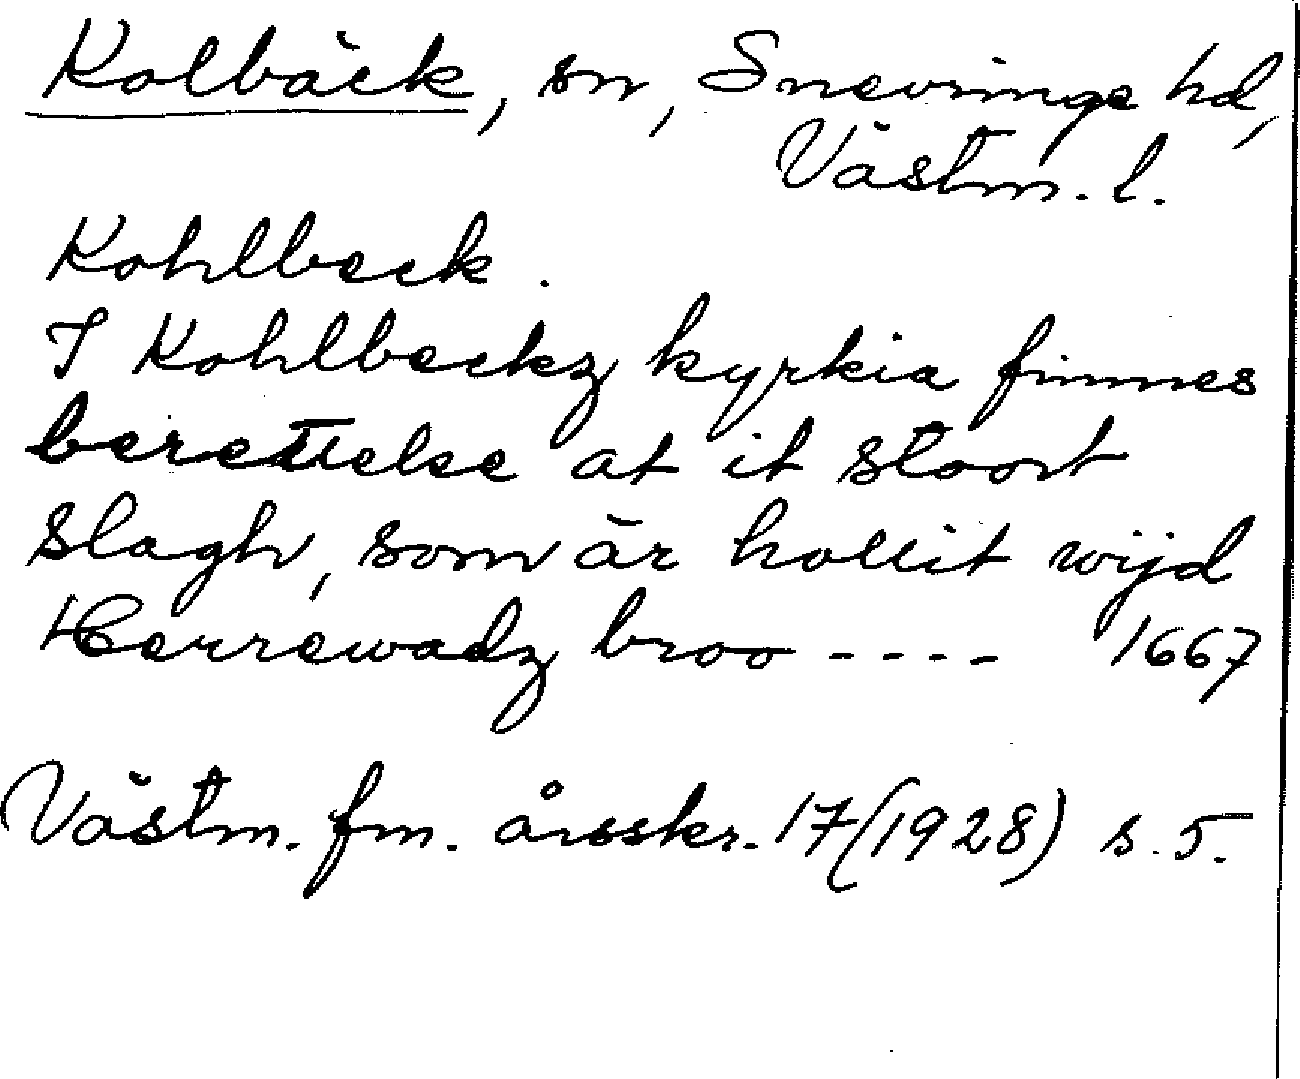 Kolbäck, sn, Snevringe hd,
Västm. l.
Kohlbeck.
I Kohlbeckz kyrkia finnes
berettelse at it stoort
slagh, som är hollit wijd
Herrewadz broo ---- 1667
Västm. fm. årsskr. 17(1928) s. 5.